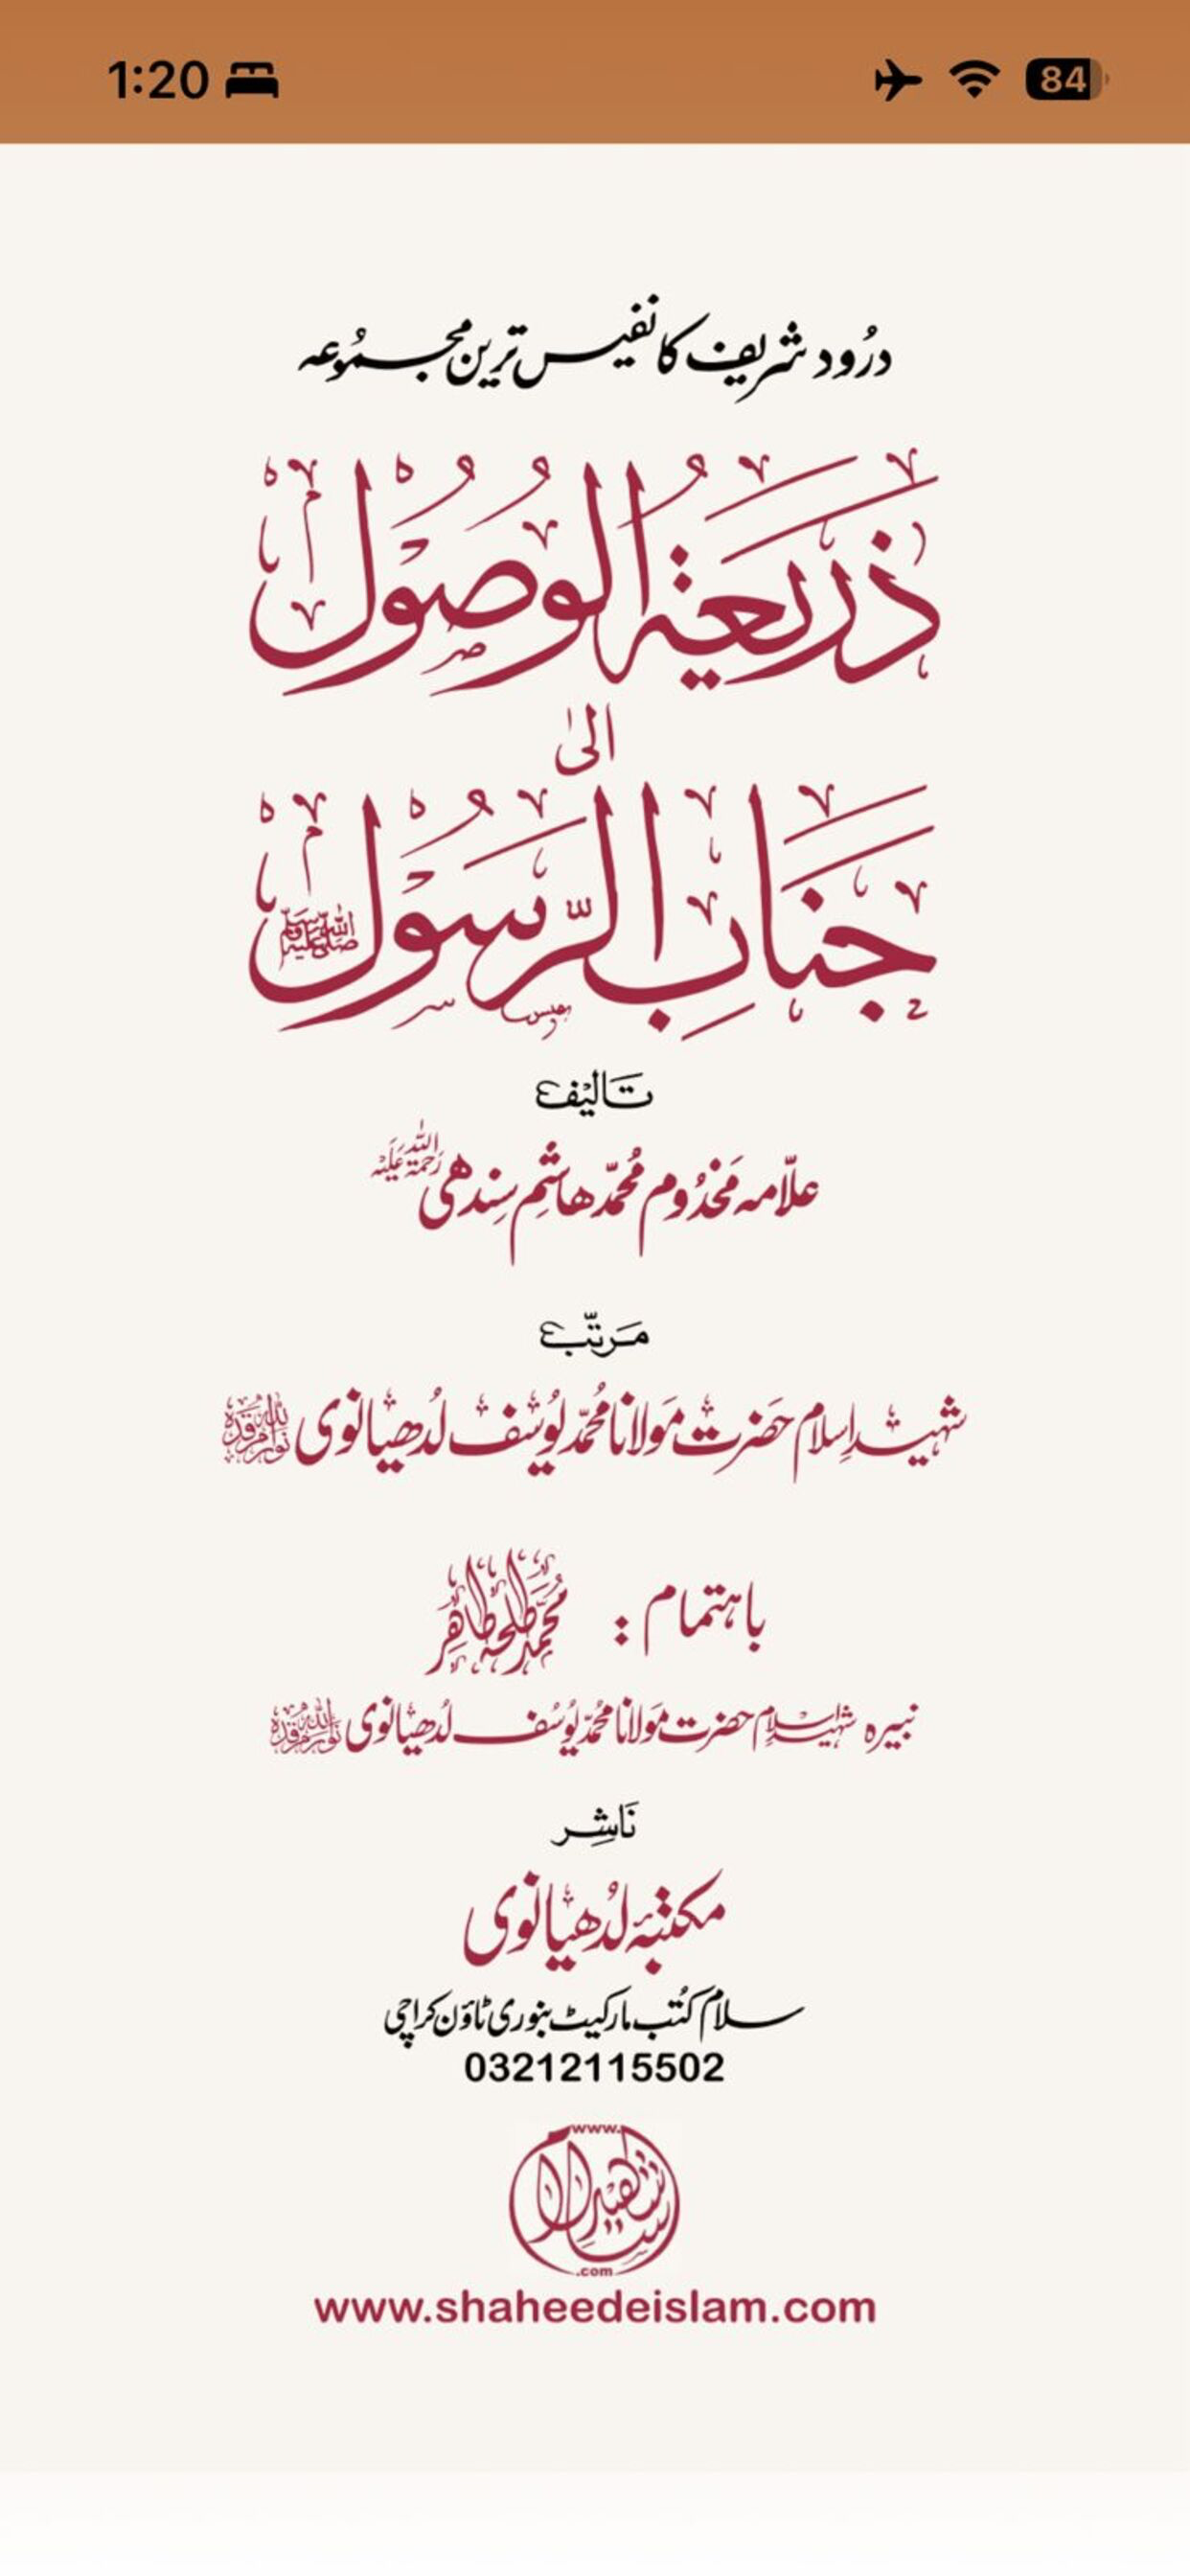 1:20
84
درُود شریف کا نفیس ترین مجموُعہ
ذَرِیعَۃُ الوُصُول
الیٰ
جَنَابِ الرَّسُوْل ﷺ
تَالیْف
علّامہ مَخدُوم مُحمّد ھاشِم سِندھی رَحمۃُ اللہ عَلَیْہ
مَرتّب
شہیدِ اِسلام حَضرت مَولانا مُحمّد یُوسُف لُدھیانوی
باہتمام : مُحمّد طلحہ طاہر
نبیرہ شہیدِ اسلام حضرت مَولانا مُحمّد یُوسُف لُدھیانوی
نَاشِر
مکتبۂ لُدھیانوی
سلام کُتب مارکیٹ بنوری ٹاؤن کراچی
03212115502
www.
شہیدِ اسلام
.com
www.shaheedeislam.com